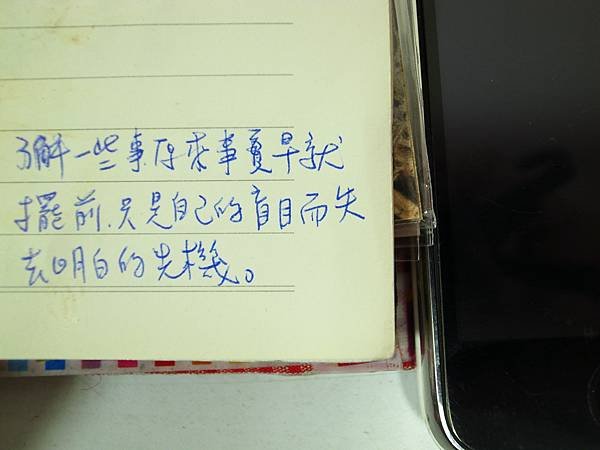 了解一些事原來事實早就
擺前,只是自己的盲目而失
去明白的先機。